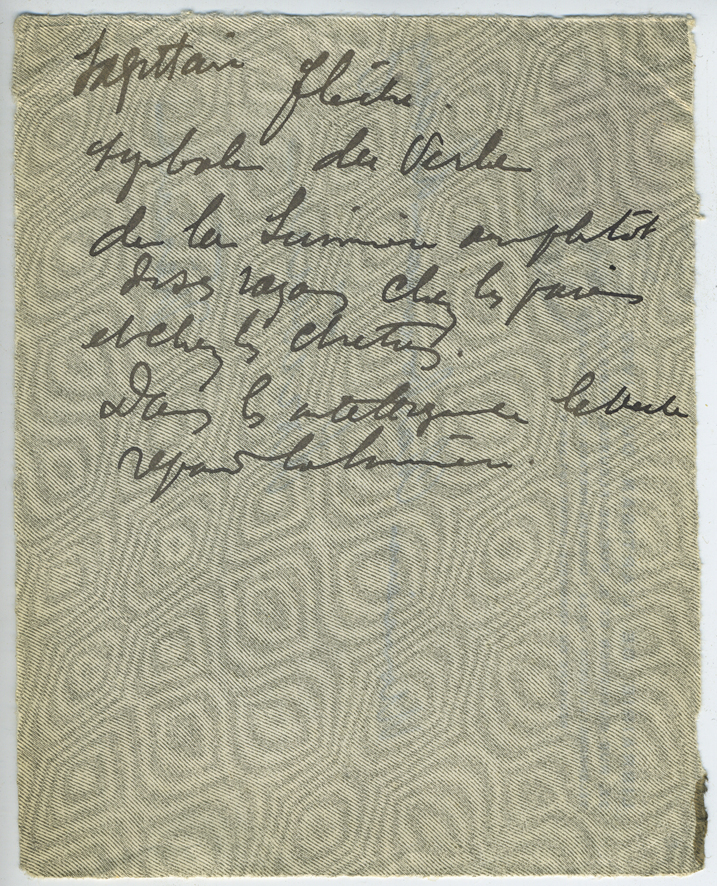 Sagittaire flèche.
symbole du Verbe
de la Lumière ou plutôt
de ses rayons chez les païens
et chez les chrétiens.
Dans les le Verbe
répand la lumière.